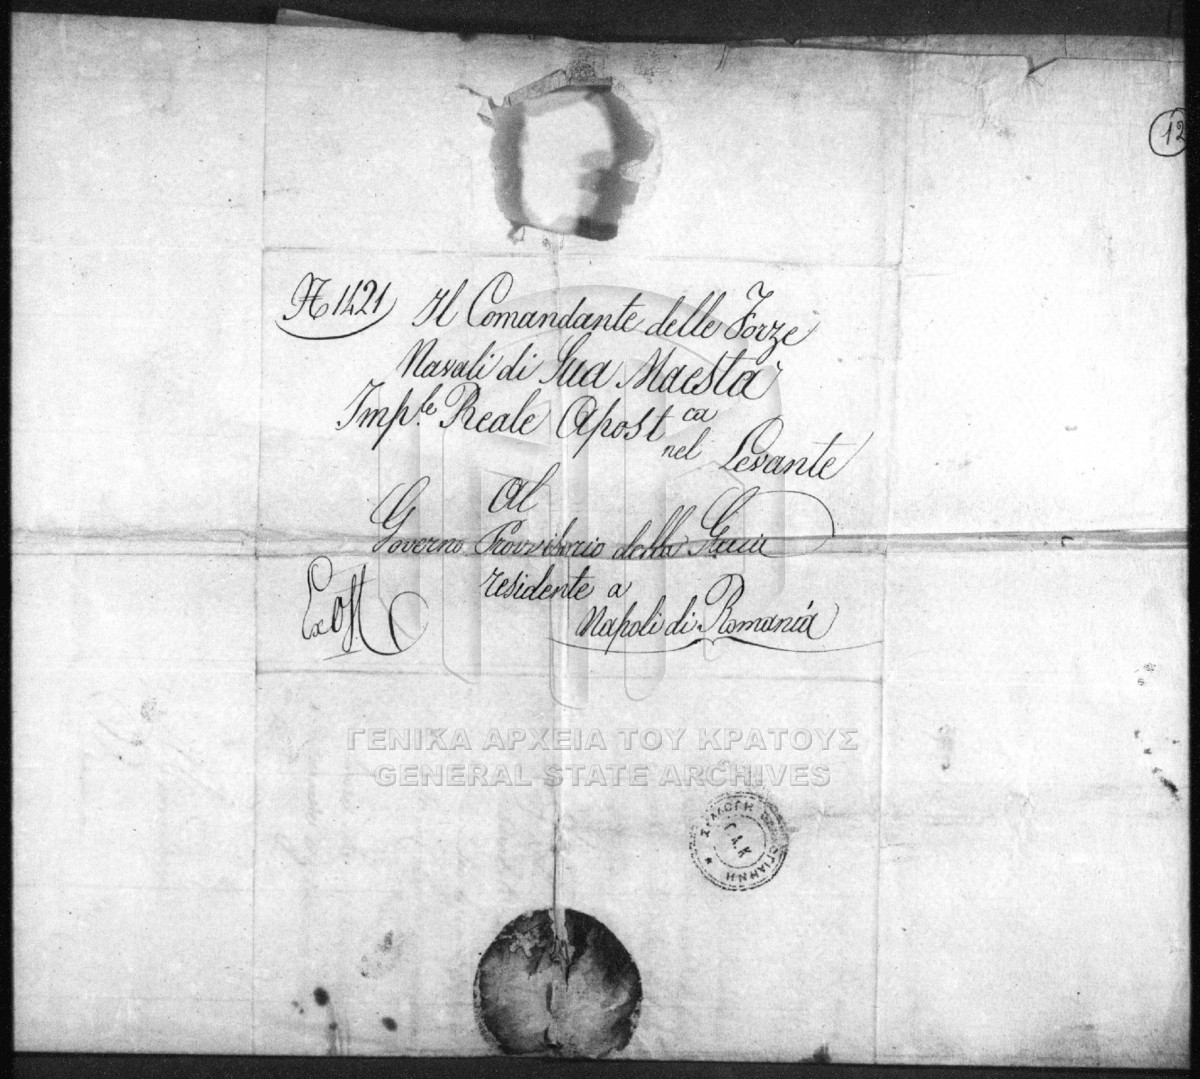 12
N 1421 Il Comandante delle Forze
Navali di Sua Maestà
Imp.le Reale Apost.ca
nel Levante
Al
Governo Provvisorio della Grecia
residente a
Napoli di Romanía
Ex Off.
ΓΕΝΙΚΑ ΑΡΧΕΙΑ ΤΟΥ ΚΡΑΤΟΥΣ
GENERAL STATE ARCHIVES
ΣΥΛΛΟΓΗ
Γ.Α.Κ